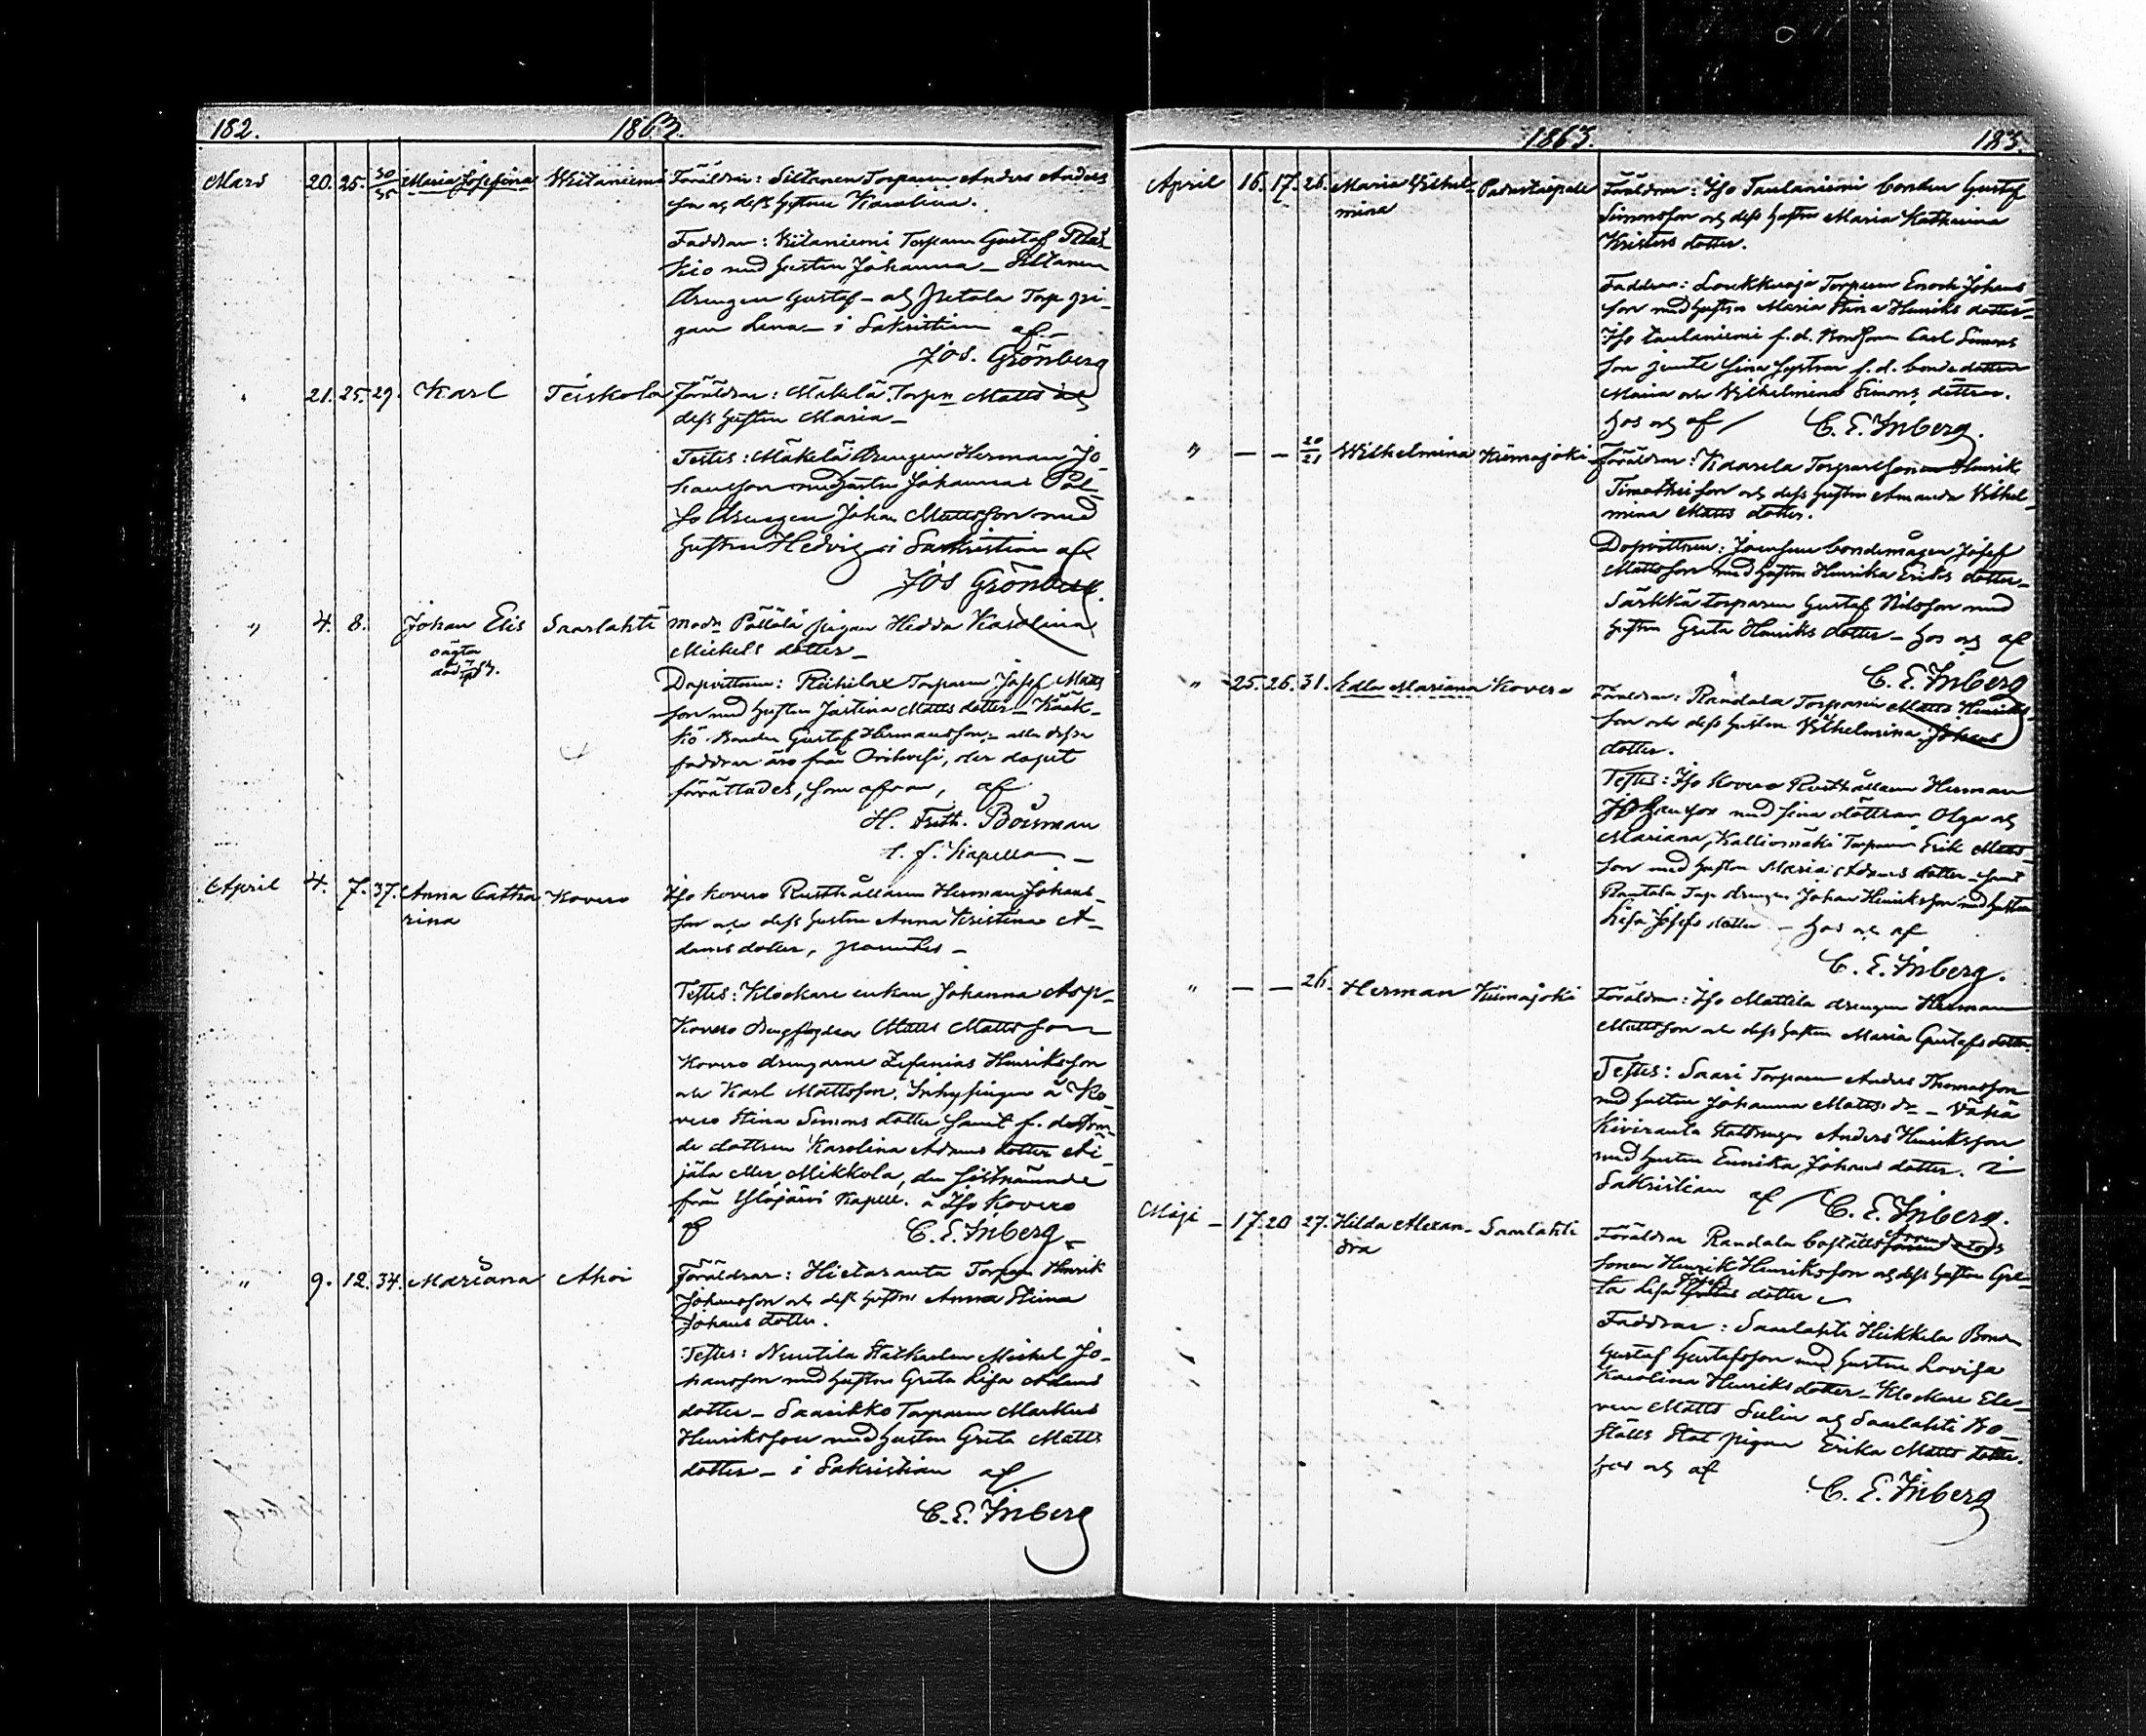 182. 1863.
Mars 20. 25. 30/35 Maria Josefina Wiitaniemi Föräldrar: Siltanen Torparen Anders Anders
son och dess hustru Karolina.
Faddrar: Wiitaniemi Torparen Gustaf
med hustrun Johanna – Siltanen
drengen Gustaf – och Torp pi-
gan Lena – i Sakristian af –
Jos. Grönberg
21. 25. 29. Karl Teiskola Föräldrar: Mäkelä Torpn Matts och
dess hustru Maria –
Testes: Mäkelä drengen Herman Jo-
hansson med hustru Johanna
drengen Johan Mattsson med
hustrun Hedvig i Sakristian af
Jos Grönberg.
" 4. 8. Johan Elis Saarlahti modr. Pöllölä pigan Hedda Karolina
oägta Michels dotter –
Dopvittnen: Torparen Josef Matts
son med hustrun Justina Matts dotter –
Bonden Gustaf Hermansson, – alla dessa
faddrar äro från Orihvesi, der dopet
förrättades, som ofvan, af
H. Frith. Boisman
t. f. Kapellan –
April 4. 7. 37. Anna Catha Kovero Yso Kovero Rusthållaren Herman Johans
rina son och dess hustru Anna Kristina A-
dams dotter, parentes –
Testes: Klockare enkan Johanna Asp –
Kovero Matts Mattsson
Kovero drengarne Zefanias Henriksson
och Karl Mattsson, Inhysingen å Ko-
vero Stina Simons dotter samt f. d. Bon-
de dottren Karolina Adams dotter
Mikkola, den sistnämnde
från Ylöjärvi Kapell. å Yso Kovero
af C. E. Inberg –
" 9. 12. 34. Mariana Ahoi Föräldrar: Hietaranta Torparen Henrik
Johansson och dess hustru Anna Stina
Johans dotter.
Testes: Nuutila Statkarlen Michel Jo-
hansson med hustru Greta Lisa Adams
dotter – Saarikko Torparen Markus
Henriksson med hustru Greta Matts
dotter – i Sakristian af
C. E. Inberg
1863. 183.
April 16. 17. 26. Maria Vilhel- Padustaipale Föräldrar: Yso Taulaniemi bonden Gustaf
mina Simonsson och dess hustru Maria Katharina
Kristers dotter.
Faddrar: Loukkuoja Torparen Enoch Johans
son med hustru Maria Stina Henriks dotter –
Yso Taulaniemi f. d. Bonden Carl Simons
son jemte sina systrar f. d. bonde döttrar
Maria och Vilhelmina Simons döttrar.
hos och af C. E. Inberg.
" – – 20/21 Wilhelmina Kiimajoki Föräldrar: Kaarela Torparesonen Henrik
Timotheisson och dess hustru Amanda Vilhel-
mina Matts dotter.
Dopvittnen: bondemågen Josef
Mattsson med hustru Henrika Eriks dotter –
Särkkä torparen Gustaf Nilsson med
hustru Greta Henriks dotter – hos och af
C. E. Inberg
" 25. 26. 31. Edla Mariana Kovero Föräldrar: Randala Torparen Matts Henriks-
son och dess hustru Vilhelmina Johans
dotter.
Testes: Yso Kovero Rusthållaren Herman
Johansson med sina döttrar Olga och
Mariana, Kalliomäki Torparen Erik Matts
son med hustru Maria Adams dotter – samt
Torp drengen Johan Henriksson med hustru
Lisa Josefs dotter – hos och af
C. E. Inberg.
" – – 26. Herman Kiimajoki Föräldrar: Yso Mattila drengen Herman
Mattsson och dess hustru Maria Gustafs dotter.
Testes: Saari Torparen Anders Thomasson
med hustru Johanna Matts dr – Vähä
Kiviranta Statdrengen Anders Henriksson
med hustru Eunika Johans dotter. i
Sakristian af C. E. Inberg.
Maji – 17. 20 27. Hilda Alexan- Saarlahti Föräldrar Randala boställs arrendators
dra sonen Henrik Henriksson och dess hustru Gre-
ta Lisa Josefs dotter
Faddrar: Saarlahti Heikkila Bonden
Gustaf Gustafsson med hustru Lovisa
Karolina Henriks dotter – Klockare Ele-
ven Matts Sulin och Saarlahti Bo-
ställs Stat pigan Erika Matts dotter.
hos och af
C. E. Inberg